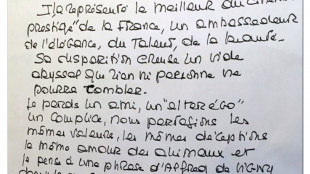 Il a représenté le meilleur du
prestige" de la France, un ambassadeur
de l'élégance, du Talent, de la beauté.
Sa disparition creuse un vide
abyssal que rien ni personne ne
pourra combler.
Je perds un ami, un "alter égo"
un complice, nous partagions les
mêmes valeurs, les mêmes déceptions
le même amour des animaux et
je pense à une phrase d'Alfred de Vigny